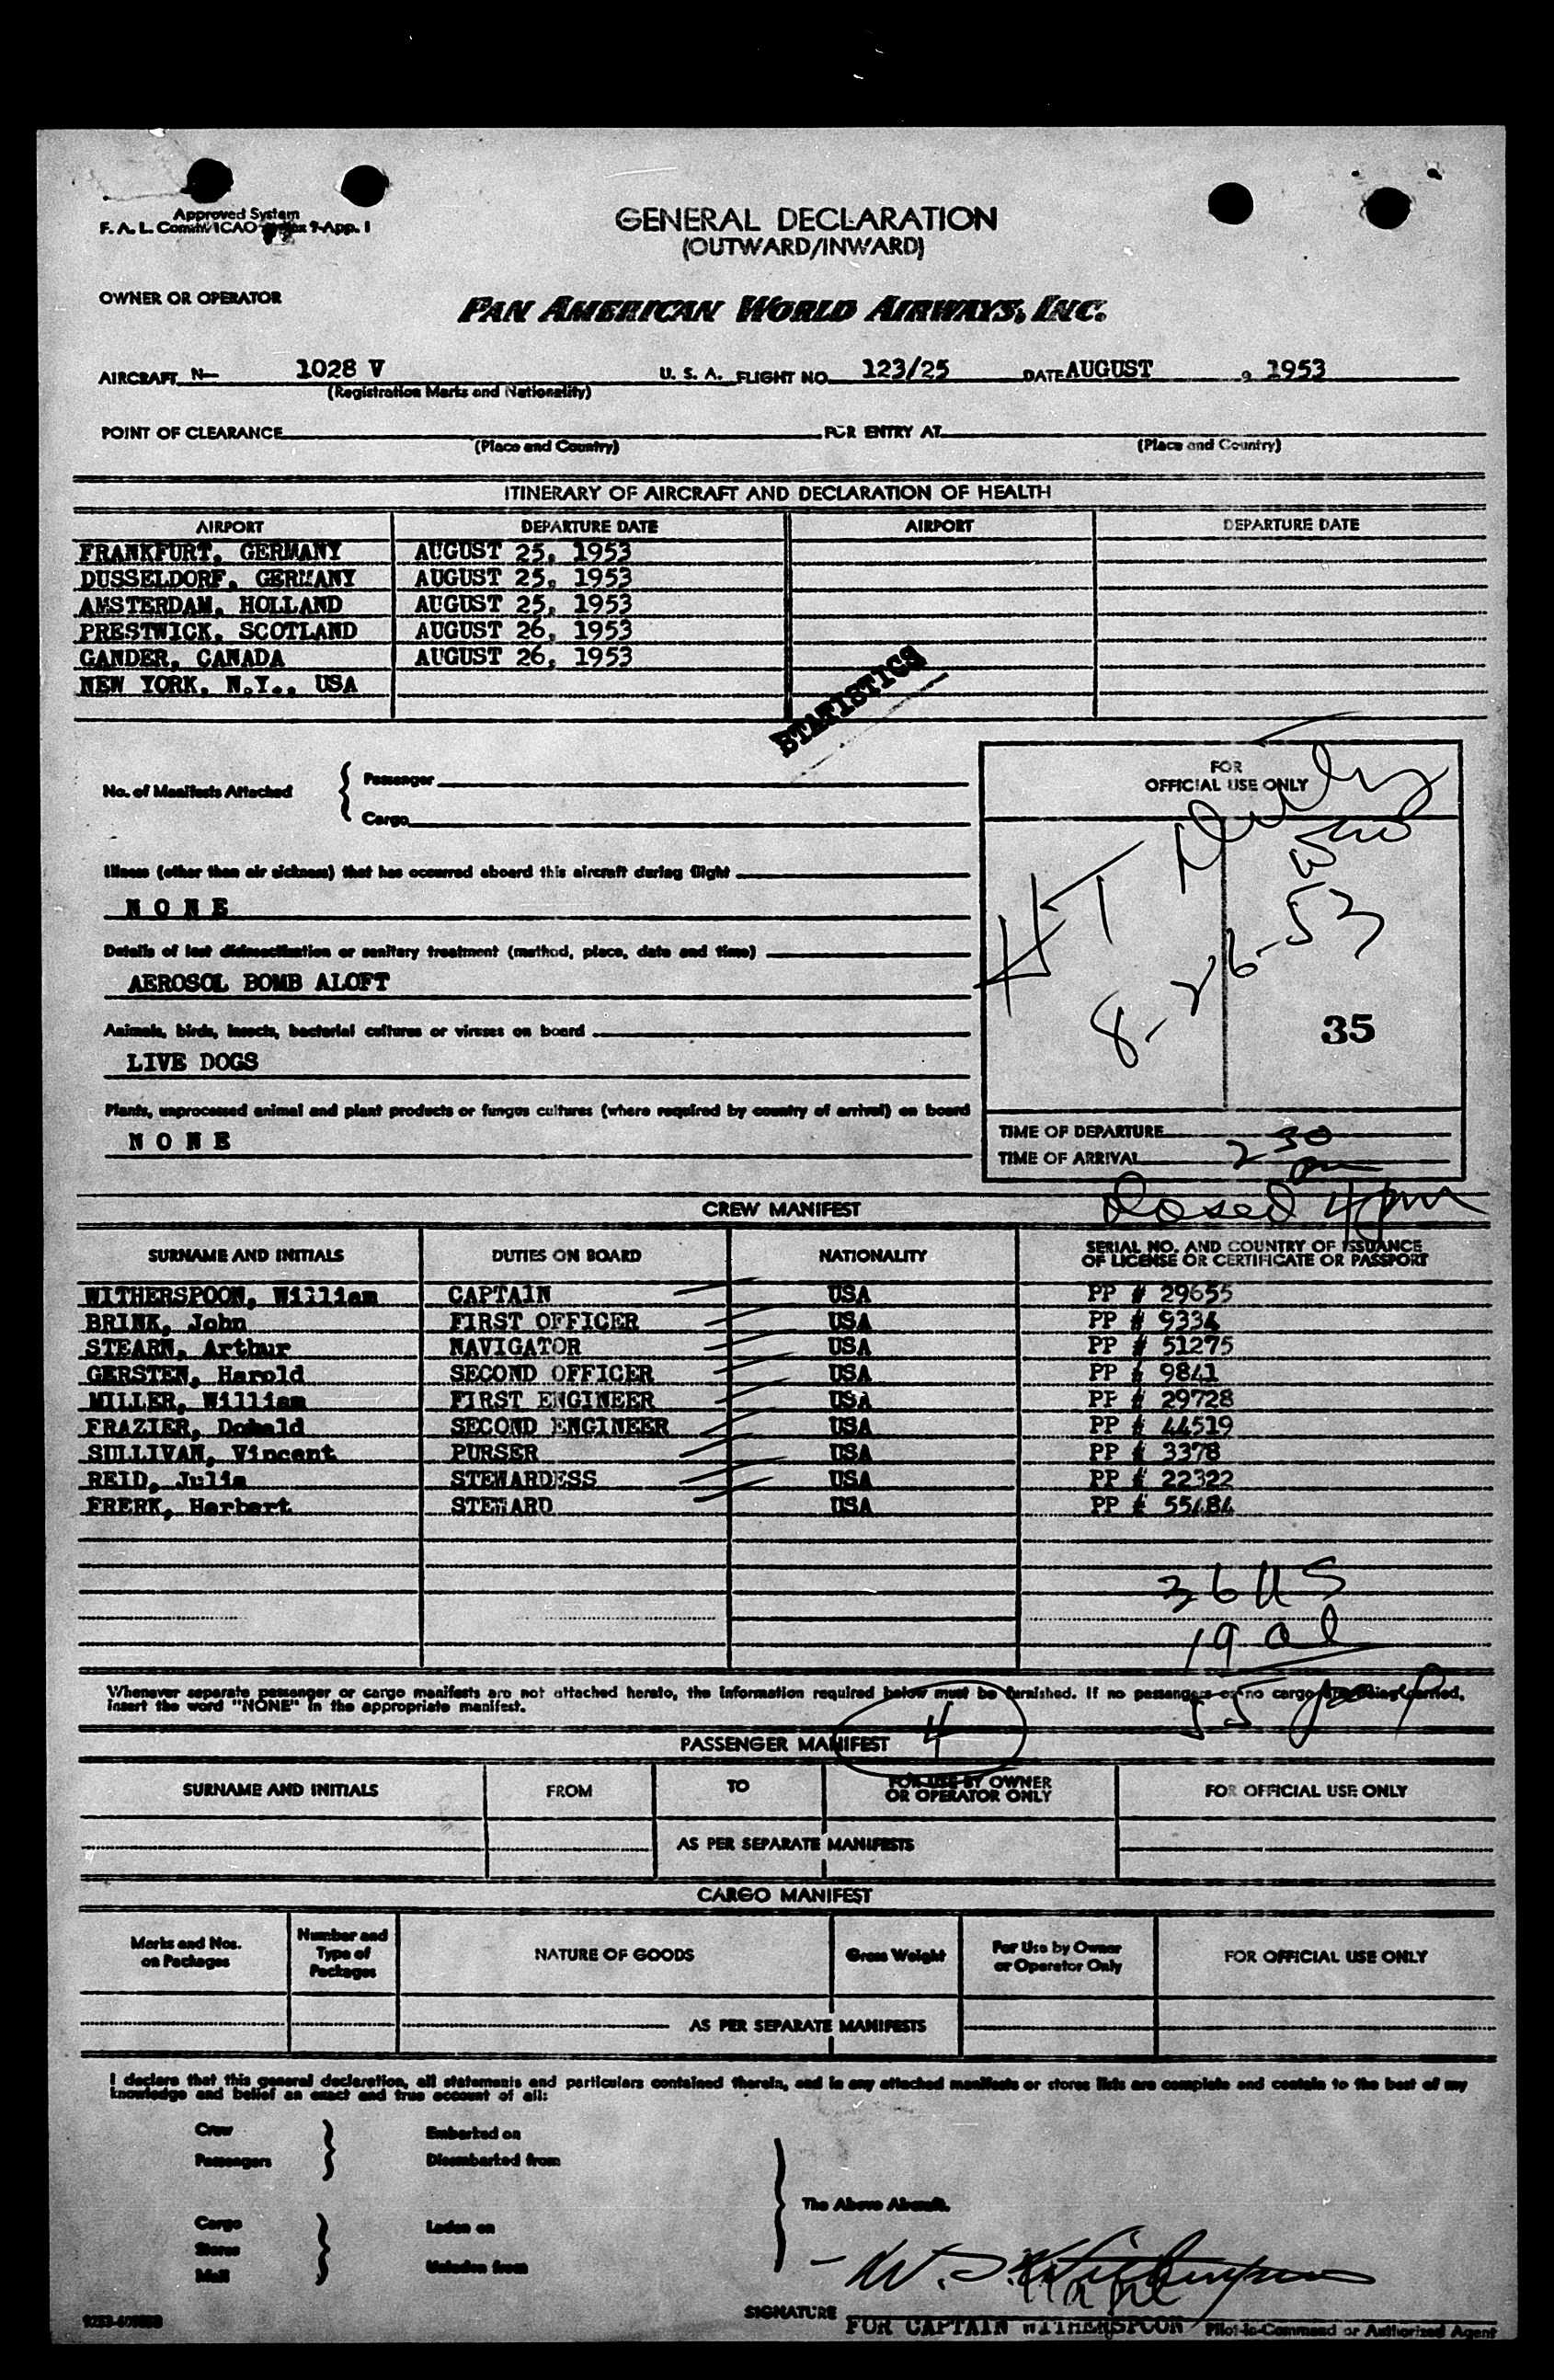 Approved System
F. A. L. Comm/ICAO Annex 9-App. 1
GENERAL DECLARATION
(OUTWARD/INWARD)
OWNER OR OPERATOR
PAN AMERICAN WORLD AIRWAYS, INC.
AIRCRAFT N— 1028 V U. S. A. FLIGHT NO. 123/25 DATE AUGUST , 1953
(Registration Marks and Nationality)
POINT OF CLEARANCE FOR ENTRY AT
(Place and Country) (Place and Country)
ITINERARY OF AIRCRAFT AND DECLARATION OF HEALTH
AIRPORT DEPARTURE DATE AIRPORT DEPARTURE DATE
FRANKFURT, GERMANY AUGUST 25, 1953
DUSSELDORF, GERMANY AUGUST 25, 1953
AMSTERDAM, HOLLAND AUGUST 25, 1953
PRESTWICK, SCOTLAND AUGUST 26, 1953
GANDER, CANADA AUGUST 26, 1953
NEW YORK, N.Y., USA
STATISTICS
No. of Manifests Attached { Passenger
Cargo
FOR
OFFICIAL USE ONLY
Illness (other than air sickness) that has occurred aboard this aircraft during flight
N O N E
Details of last disinsectization or sanitary treatment (method, place, date and time)
AEROSOL BOMB ALOFT
8-26-53
35
Animals, birds, insects, bacterial cultures or viruses on board
LIVE DOGS
Plants, unprocessed animal and plant products or fungus cultures (where required by country of arrival) on board
N O N E
TIME OF DEPARTURE
TIME OF ARRIVAL 2 30 pm
Closed 4 pm
CREW MANIFEST
SURNAME AND INITIALS DUTIES ON BOARD NATIONALITY SERIAL NO. AND COUNTRY OF ISSUANCE
OF LICENSE OR CERTIFICATE OR PASSPORT
WITHERSPOON, William CAPTAIN USA PP # 29655
BRINK, John FIRST OFFICER USA PP # 9334
STEARN, Arthur NAVIGATOR USA PP # 51275
GERSTEN, Harold SECOND OFFICER USA PP # 9841
MILLER, William FIRST ENGINEER USA PP # 29728
FRAZIER, Donald SECOND ENGINEER USA PP # 44519
SULLIVAN, Vincent PURSER USA PP # 3378
REID, Julia STEWARDESS USA PP # 22322
FRERK, Herbert STEWARD USA PP # 55484
36 US
19 al
55
Whenever separate passenger or cargo manifests are not attached hereto, the information required below must be furnished. If no passengers or no cargo are being carried,
insert the word "NONE" in the appropriate manifest.
4
PASSENGER MANIFEST
SURNAME AND INITIALS FROM TO FOR USE BY OWNER
OR OPERATOR ONLY FOR OFFICIAL USE ONLY
AS PER SEPARATE MANIFESTS
CARGO MANIFEST
Marks and Nos.
on Packages Number and
Type of
Packages NATURE OF GOODS Gross Weight For Use by Owner
or Operator Only FOR OFFICIAL USE ONLY
AS PER SEPARATE MANIFESTS
I declare that this general declaration, all statements and particulars contained therein, and in any attached manifests or stores lists are complete and contain to the best of my
knowledge and belief an exact and true account of all:
Crew Embarked on
Passengers Disembarked from
The Above Aircraft.
Cargo Laden on
Stores
Mail Unladen from
SIGNATURE
FOR CAPTAIN WITHERSPOON Pilot-in-Command or Authorized Agent